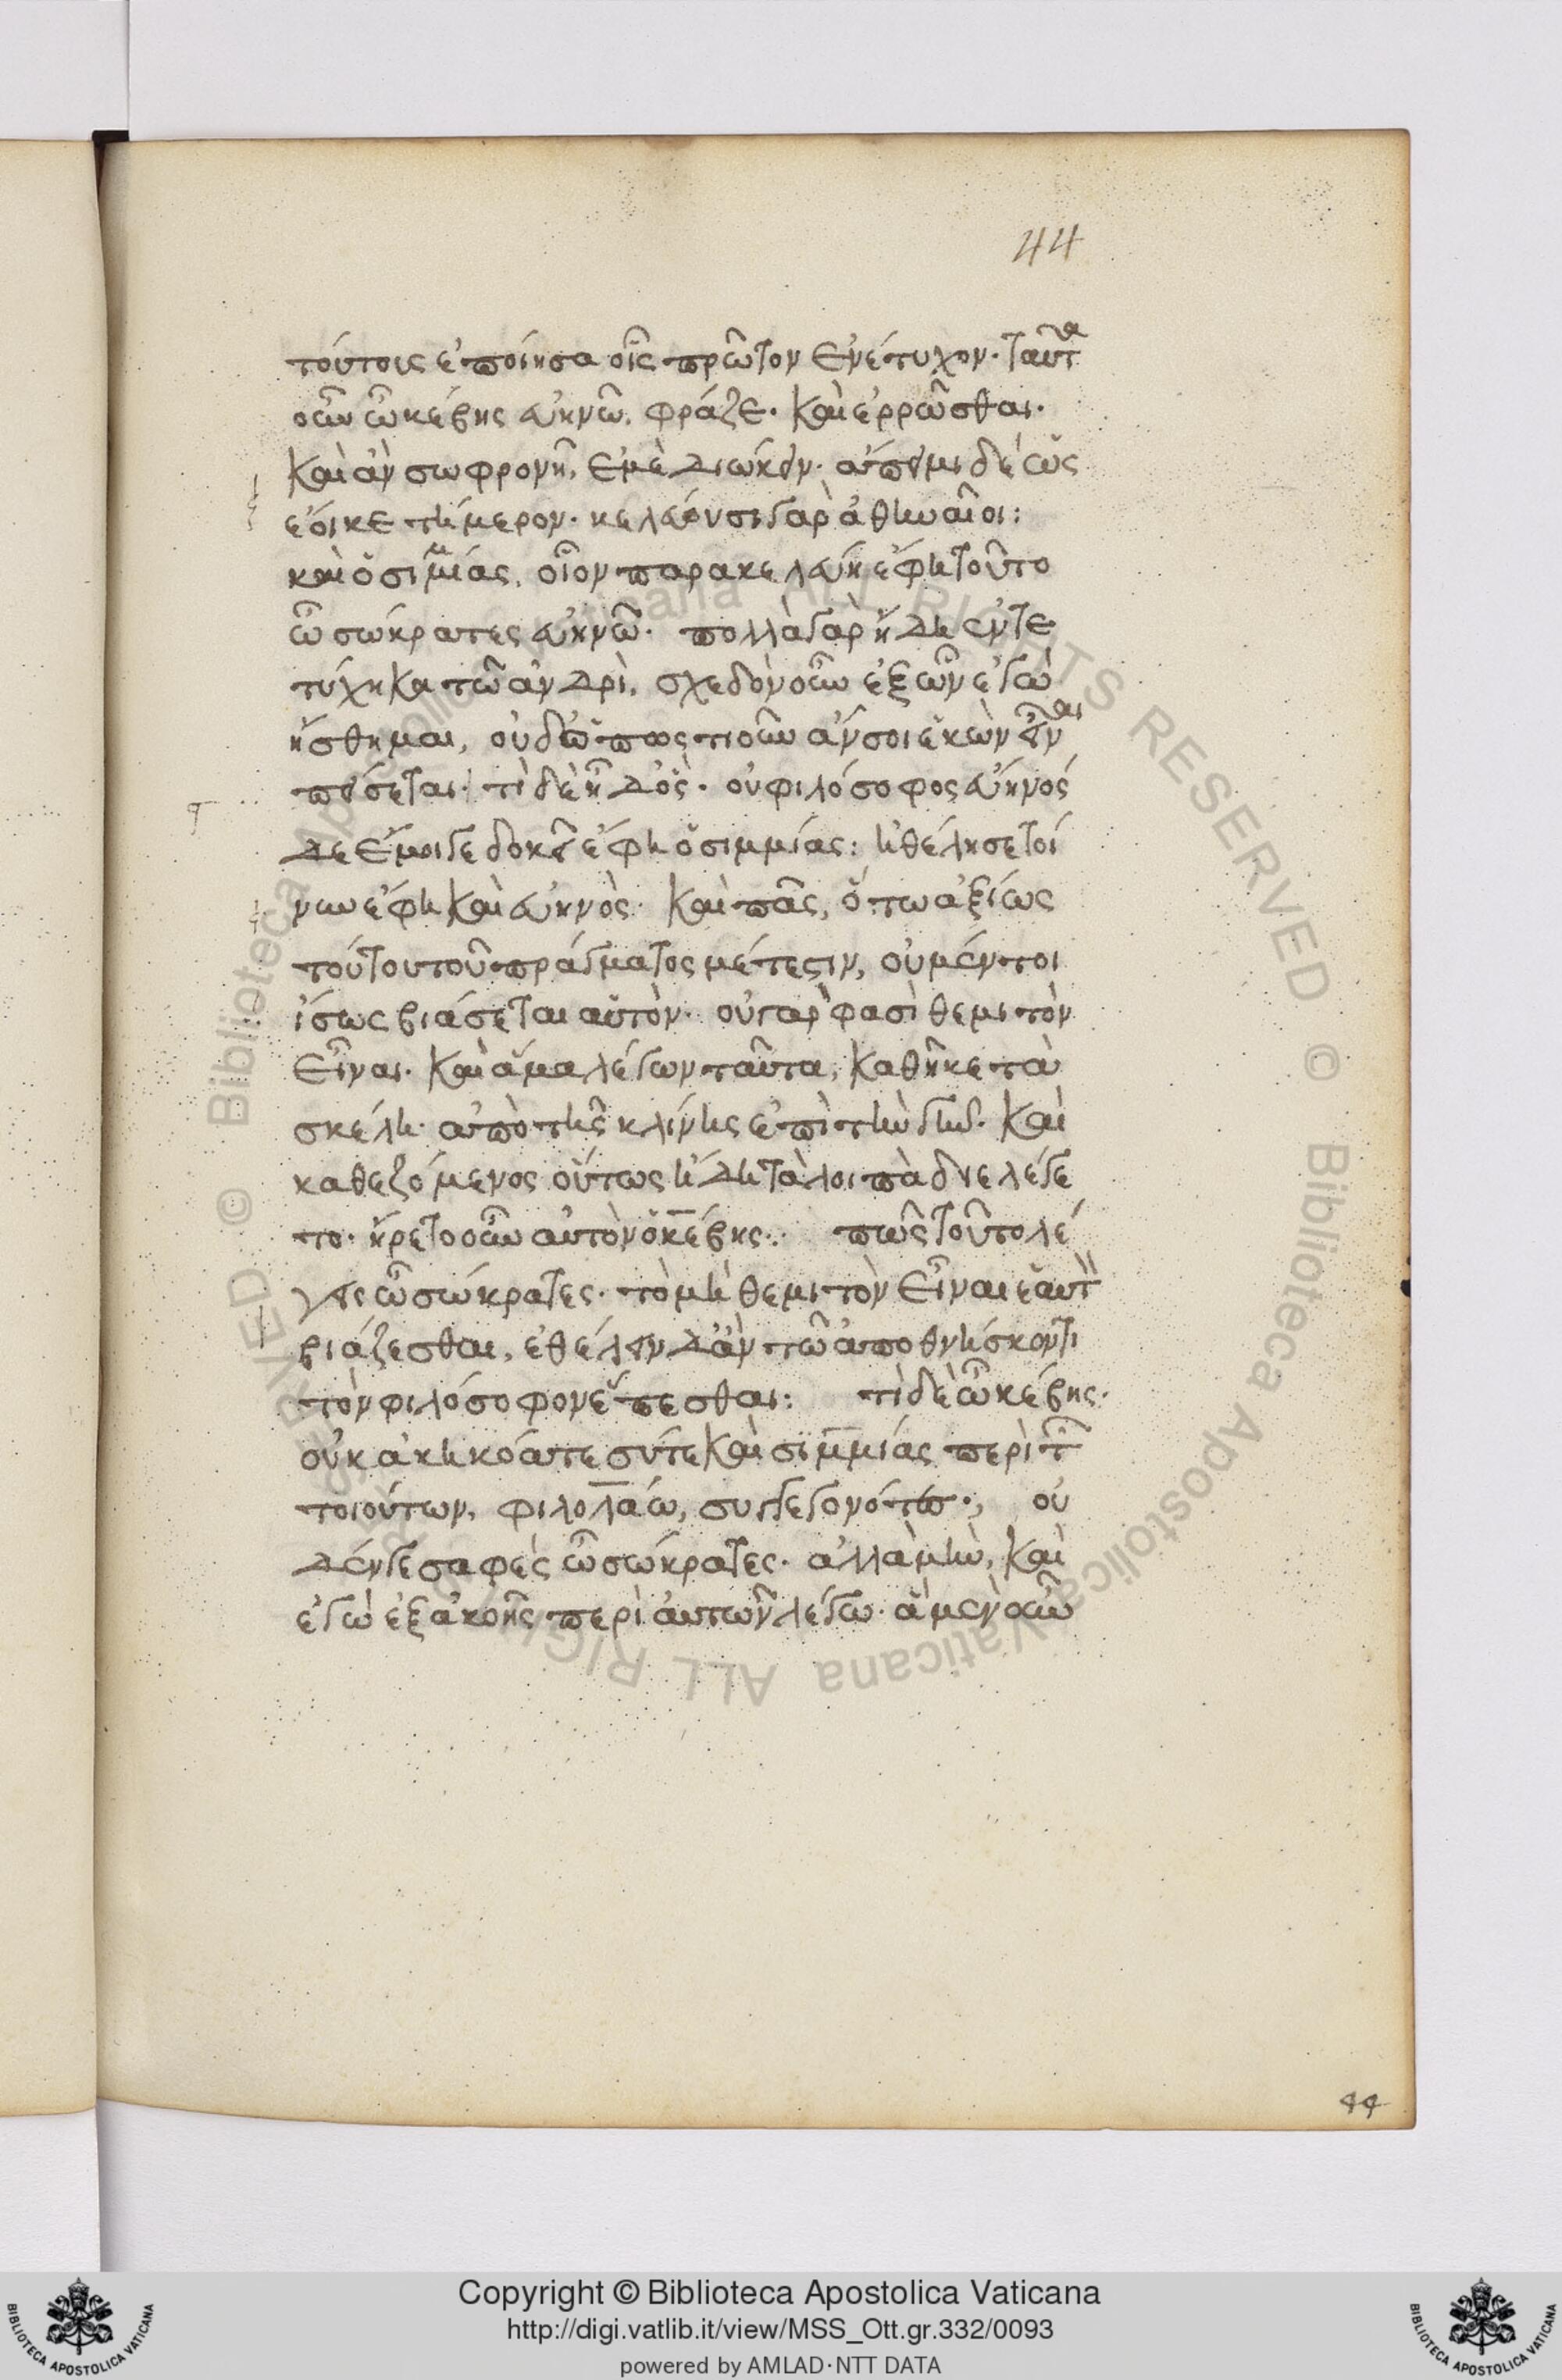 44
τούτοις ἐποίησα οἷς πρῶτον ἐνέτυχον· ταῦτα
οὖν ὦ κέβης εὐηνῶ, φράζε· καὶ ἐρρῶσθαι·
καὶ ἂν σωφρονῆ, ἐμὲ διώκειν· ἄπειμι δέ ὡς
ἔοικε τήμερον· κελεύουσι γὰρ ἀθηναῖοι:
καὶ ὁ σιμμίας, οἷον παρακελεύη ἔφη τοῦτο
ὦ σώκρατες εὐηνῶ· πολλὰ γὰρ ἤδη ἐντε
τύχηκα τῶ ἀνδρὶ, σχεδὸν οὖν ἐξ ὧν ἐγὼ
ἤσθημαι, οὐδ᾽ ὁπωστιοῦν ἄν σοι ἑκὼν εἶναι
πείσεται· τὶ δὲ ἦ δ᾽ ὅς· οὐ φιλόσοφος εὔηνός
δε ἔμοιγε δοκεῖ ἔφη ὁ σιμμίας: ἠθελήσει τοί
νυν ἔφη καὶ εὐηνὸς· καὶ πᾶς, ὅτω ἀξίως
τούτου τοῦ πράγματος μέτεστιν, οὐ μέντοι
ἴσως βιάσεται αὑτὸν· οὐ γαρ φασὶ θεμιτὸν
εἶναι· καὶ ἅμα λέγων ταῦτα, καθῆκε τὰ
σκέλη ἀπὸ τῆς κλίνης ἐπὶ τὴν γῆν· καὶ
καθεζόμενος οὕτως ἤδη τὰ λοιπὰ διελέγε
το· ἤρετο οὖν αὐτὸν ὁ κέβης· πῶς τοῦτο λέ
γεις ὦ σώκρατες· τὸ μὴ θεμιτὸν εἶναι ἑαυτὸν
βιάζεσθαι, ἐθέλειν δ᾽ ἂν τῶ ἀποθνήσκοντι
τὸν φιλόσοφον ἕπεσθαι: τὶ δὲ ὦ κέβης·
οὐκ ἀκηκόατε σύ τε καὶ σιμμίας περὶ τῶν
τοιούτων, φιλολάω, συγγεγονότες·, οὐ
δέν γε σαφὲς ὦ σώκρατες· ἀλλὰ μὴν, καὶ
ἐγὼ ἐξ ἀκοῆς περὶ αὐτῶν λέγω· ἃ μὲν οὖν
44
Copyright © Biblioteca Apostolica Vaticana
http://digi.vatlib.it/view/MSS_Ott.gr.332/0093
powered by AMLAD·NTT DATA